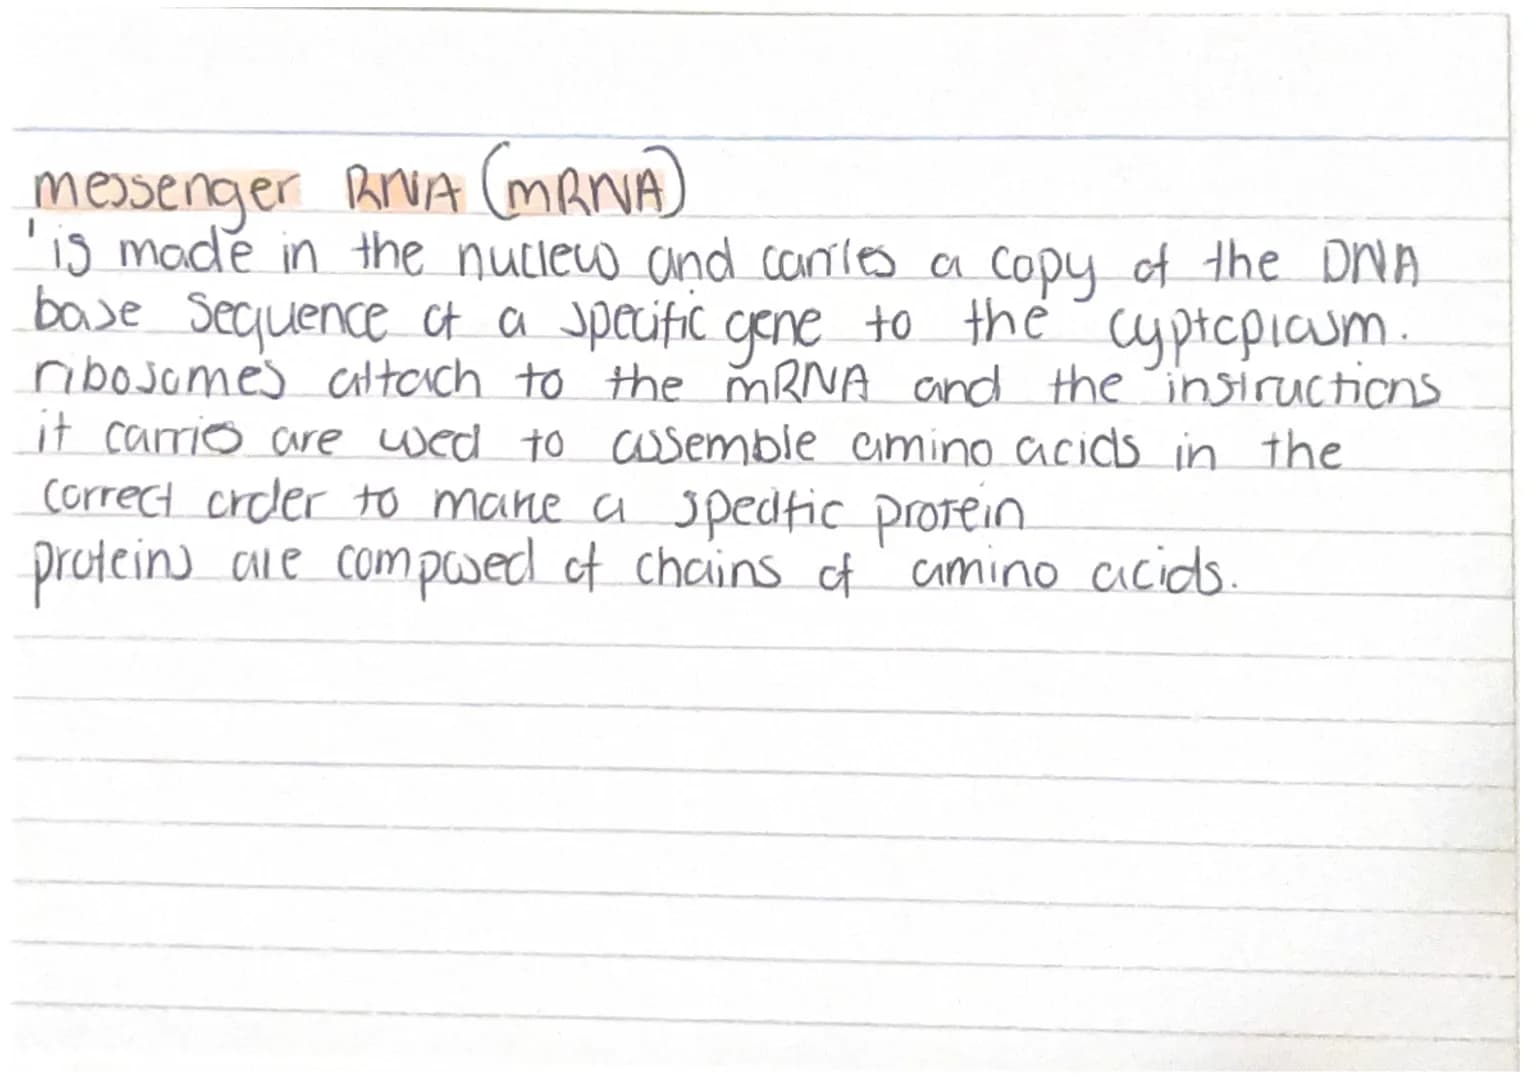 messenger RNA (mRNA)
'is made in the nucleus and carries a copy of the DNA
base sequence of a specific gene to the cyptoplasm.
ribosomes attach to the mRNA and the instructions
it carries are used to assemble amino acids in the
correct order to make a specific protein
proteins are composed of chains of amino acids.